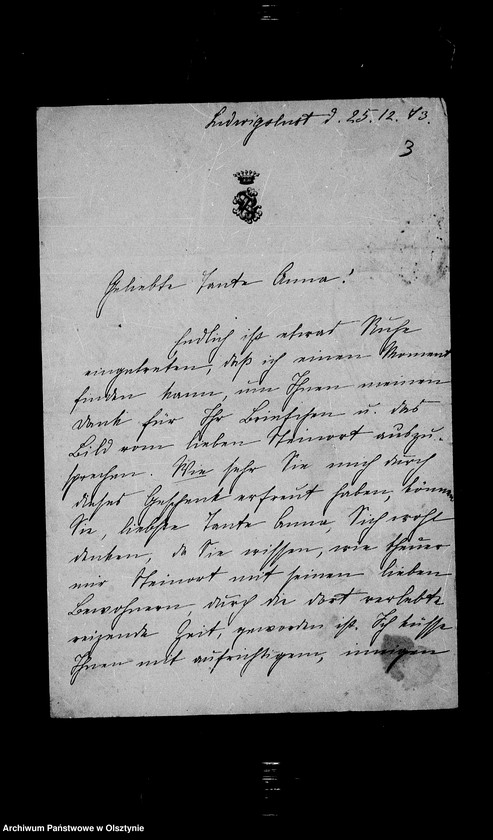 Ludwigslust d. 25.12.73.
3
Geliebte Tante Anna!
Endlich ist etwas Ruhe
eingetreten, daß ich einen Moment
finden kann, um Ihnen meinen
Dank für Ihr Briefchen u. das
Bild vom lieben Steinort auszu-
sprechen. Wie sehr Sie mich durch
dieses Geschenk erfreut haben, können
Sie, liebste Tante Anna, Sich wohl
denken, da Sie wissen, wie theuer
mir Steinort mit seinen lieben
Bewohnern, durch die dort verlebte
reizende Zeit, geworden ist. Ich küsse
Ihnen mit aufrichtigem, innigen
Archiwum Państwowe w Olsztynie